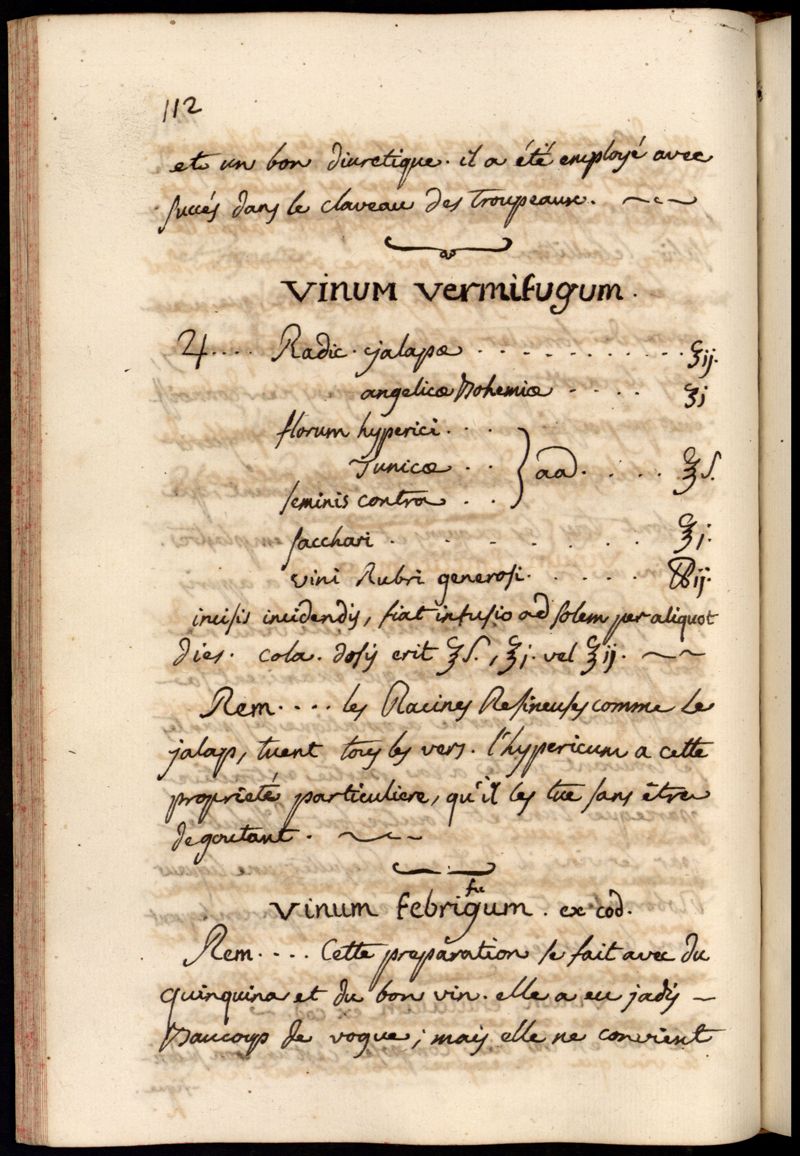 112
et un bon diuretique. il a été employé avec
succés dans le claveau des troupeaux.
vinum vermifugum.
♃.... Radic. jalapæ . . . . . . . . . . ℥ij.
angelicæ Bohemiæ . . . . . ℥j
florum hyperici . . .
Tunicæ . . } aa . . . . . ℥ſ.
seminis contra . .
sacchari . . . . . . . ℥j.
vini Rubri generosi . . . . . ℔ij.
incisis incidendis, fiat infusio ad solem per aliquot
dies. cola. dosis erit ℥ſ., ℥j. vel ℥ij.
Rem.... les Racines Resineuses comme Le
jalap, tuent tous les vers. l'hypericum a cette
proprieté particuliere, qu'il les tue sans être
degoutant.
vinum febrifugum. ex cod.
Rem.... Cette preparation se fait avec du
quinquina et du bon vin. elle a eu jadis
Baucoup de vogue; mais elle ne convient